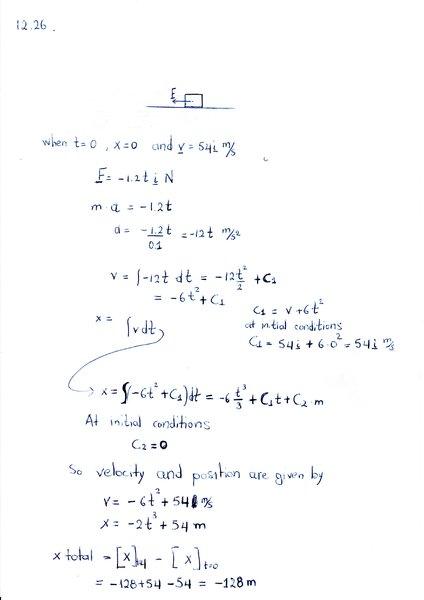 12.26.
F
when t=0, x=0 and v = 54i m/s
F = -1.2t i N
m·a = -1.2t
a = -1.2t/0.1 = -12t m/s²
v = ∫-12t dt = -12t²/2 + C₁
= -6t² + C₁
C₁ = v+6t²
x = ∫vdt
at initial conditions
C₁ = 54i + 6·0² = 54i m/s
x = ∫(-6t² + C₁)dt = -6 t³/3 + C₁t + C₂ m
At initial conditions
C₂ = 0
So velocity and position are given by
v = -6t² + 54 m/s
x = -2t³ + 54 m
x total = [x]t=4 - [x]t=0
= -128+54 -54 = -128 m